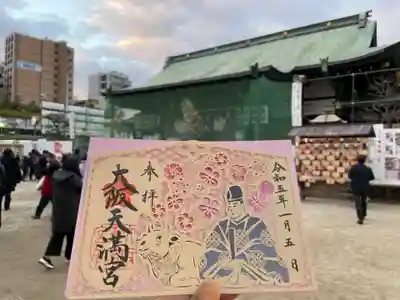 奉拝
大阪天満宮
令和五年一月五日